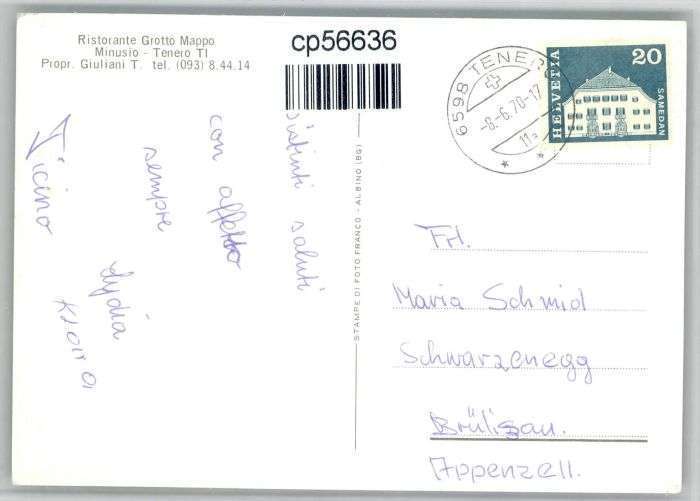 Ristorante Grotto Mappo
Minusio - Tenero TI
Propr. Giuliani T. tel. (093) 8.44.14
cp56636
6598 TENERO
-8-6.70-17
11a
HELVETIA
20
SAMEDAN
Ticino
distinti saluti
con affetto
sempre
Lydia
STAMPE DI FOTO FRANCO - ALBINO (BG)
Frl.
Maria Schmid
Schwarzenegg
Brülisau.
Appenzell.